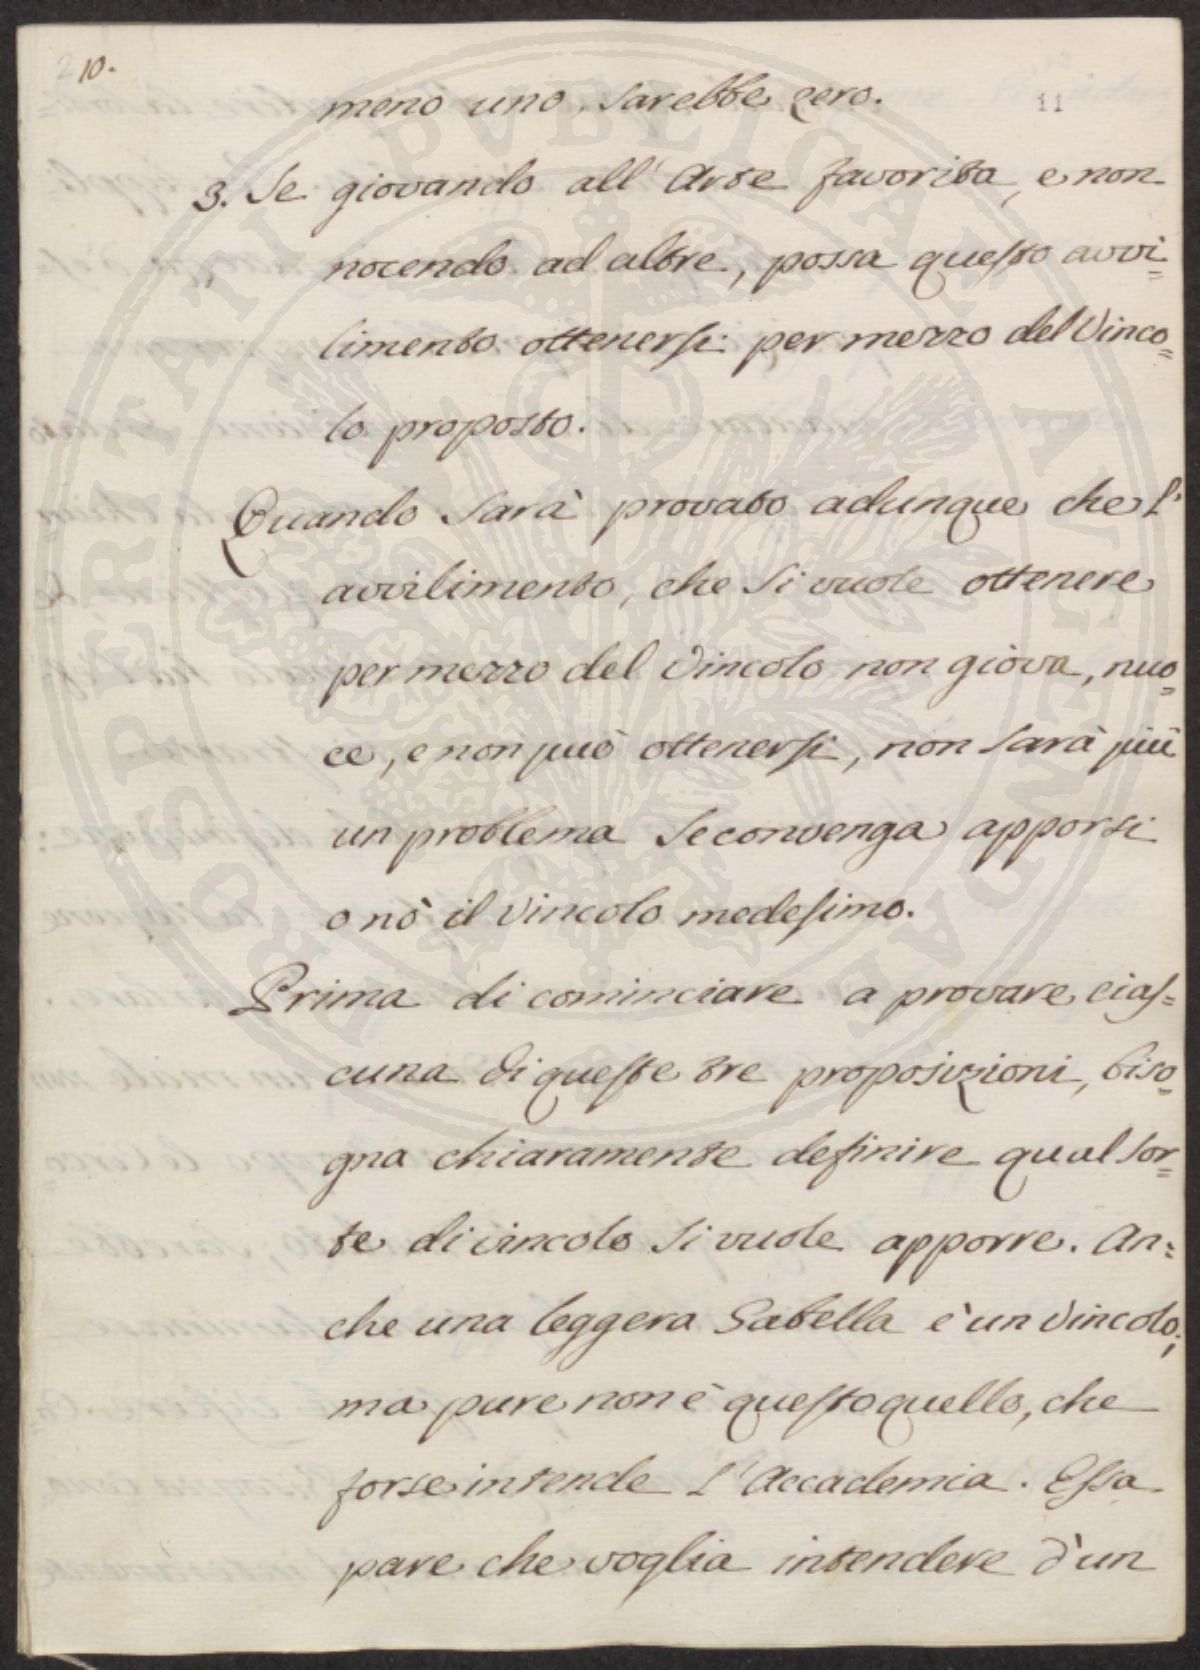 10.
11
meno uno, sarebbe zero.
3. Se giovando all'Arte favorita, e non
nocendo ad altre, possa questo avvi=
limento ottenersi per mezzo del Vinco=
lo proposto.
Quando sarà provato adunque che l'
avvilimento, che si vuole ottenere
per mezzo del Vincolo non giova, nuo=
ce, e non può ottenersi, non sarà più
un problema se convenga apporsi
o nò il Vincolo medesimo.
Prima di cominciare a provare cias=
cuna di queste tre proposizioni, biso=
gna chiaramente definire qual sor=
te di vincolo si vuole apporre. An=
che una leggera Gabella è un Vincolo;
ma pure non è questo quello, che
forse intende l'Accademia. Essa
pare che voglia intendere d'un
PROSPERITATI PVBLICAE AVGENDAE